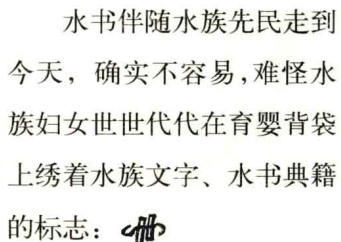 水书伴随水族先民走到
今天，确实不容易，难怪水
族妇女世世代代在育婴背袋
上绣着水族文字、水书典籍
的标志：